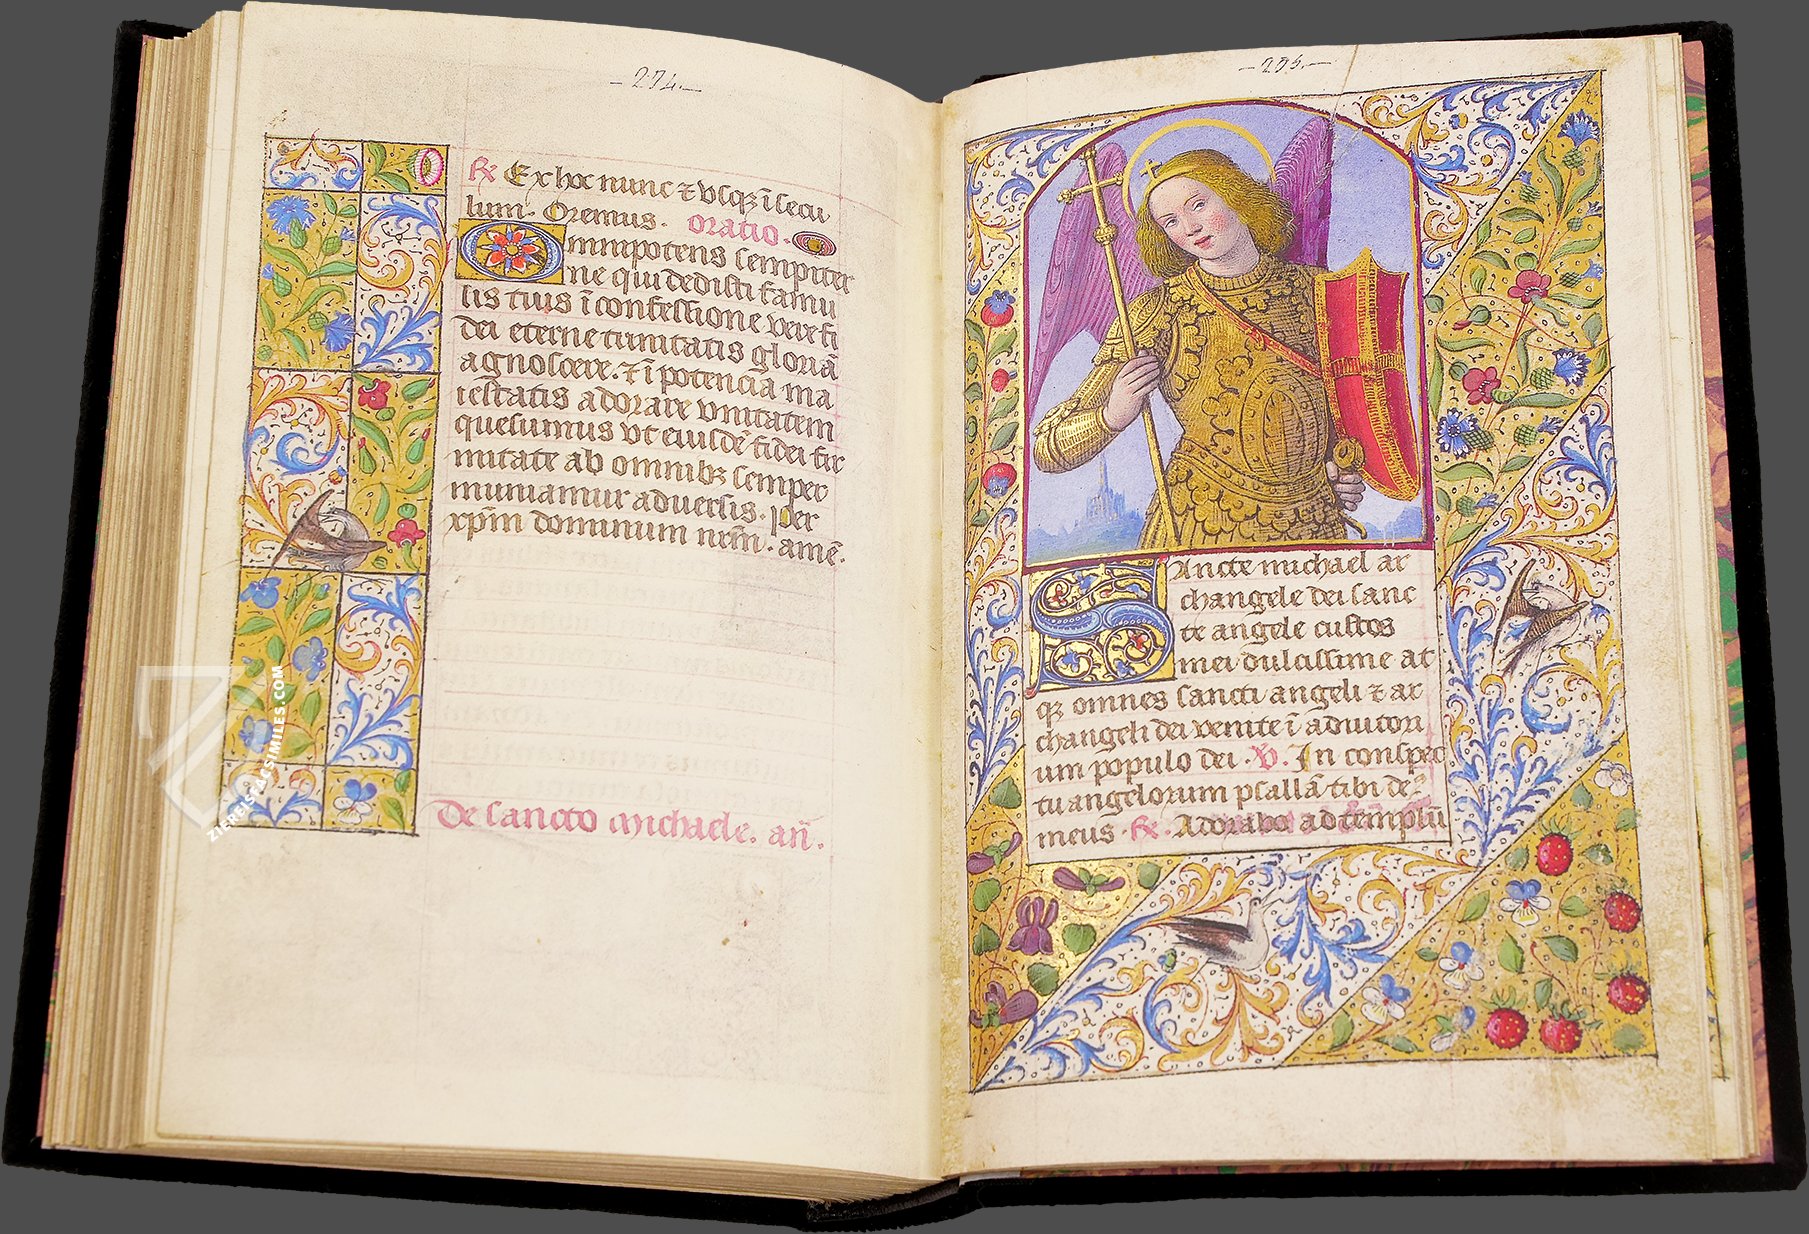 - 274. -
℟ Ex hoc nunc ⁊ vsqꝫ ī secu
lum. Oremus. Oratio.
Omnipotens sempiter
ne qui dedisti famu
lis tuis ī confessione vere fi
dei eterne trinitatis gloriā
agnoscere. ⁊ ī potencia ma
iestatis adorare vnitatem
quesumus vt eiusdē fidei fir
mitate ab omnibꝫ semper
muniamur aduersis. Per
xp̄m dominum nr̄m. amē.
De sancto Michaele. añ.
- 275. -
Sancte michael ar
changele dei sanc
te angele custos
mei dulcissime at
qꝫ omnes sancti angeli ⁊ ar
changeli dei venite ī adiutori
um populo dei. ℣. In conspec
tu angelorum psallā tibi de⁹
meus. ℟. Adorabo ad templū
ZIEREIS FACSIMILES.COM